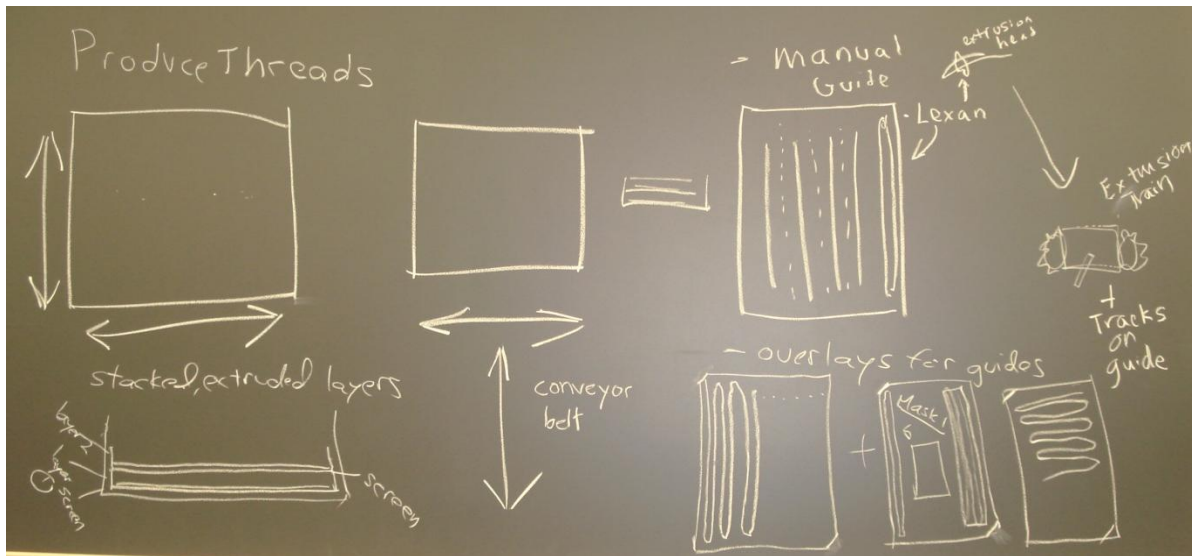 Produce Threads
stacked, extruded layers
Layer 2
Layer screen
screen
conveyor
belt
- Manual
Guide
extrusion
head
- Lexan
Extrusion
Train
+
Tracks
on
guide
- overlays for guides
+
Mask 1